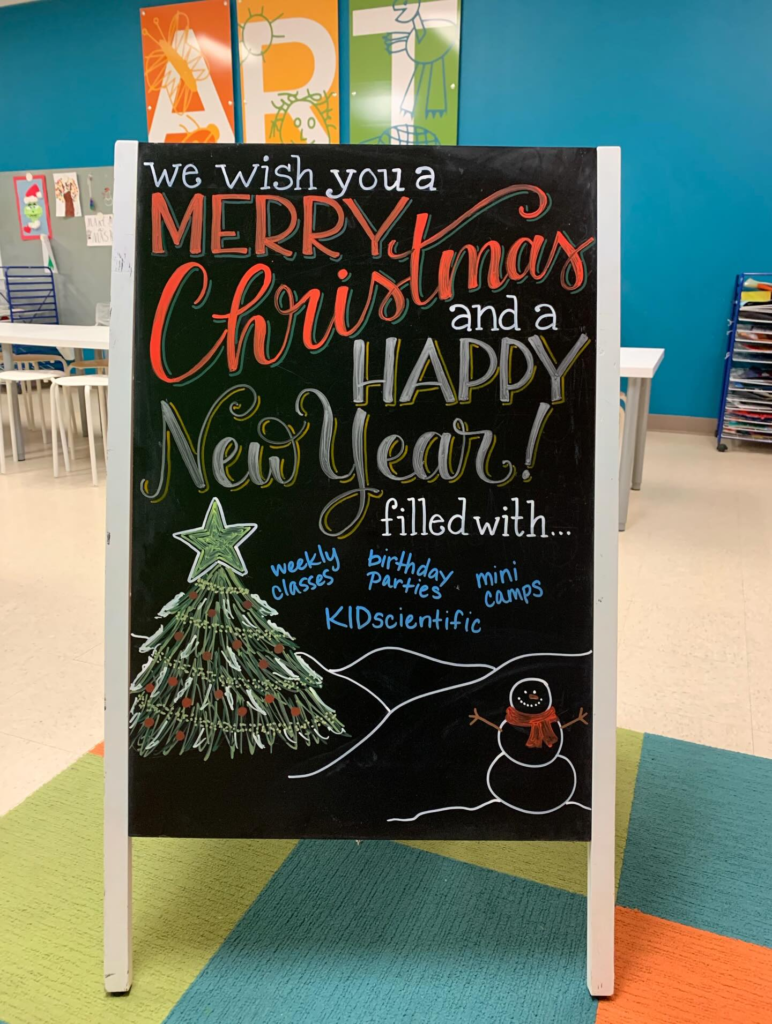 ART
we wish you a
MERRY
Christmas
and a
HAPPY
New Year!
filled with...
weekly classes
birthday parties
mini camps
KIDscientific